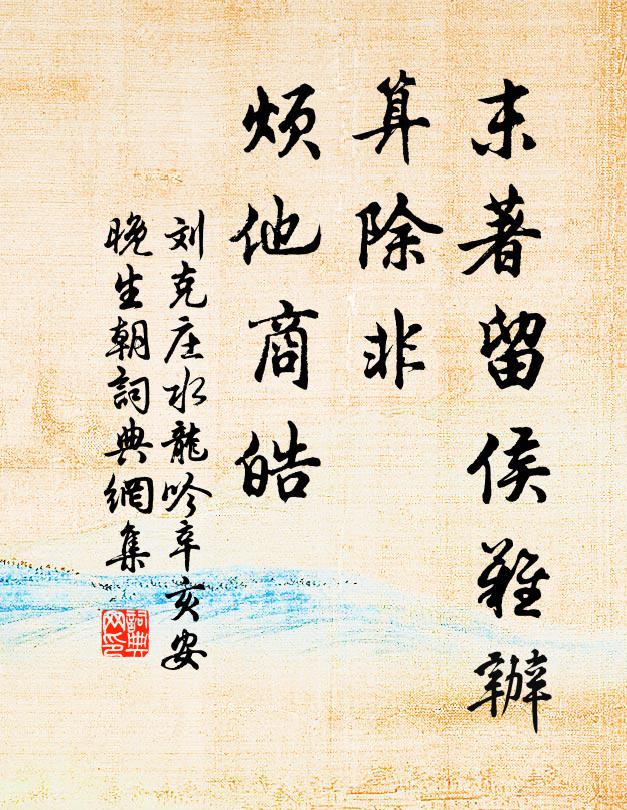 末著留侯难辦
算除非
烦他商皓
刘克庄水龍吟辛亥安
晚生朝詞典網集
詞典网印